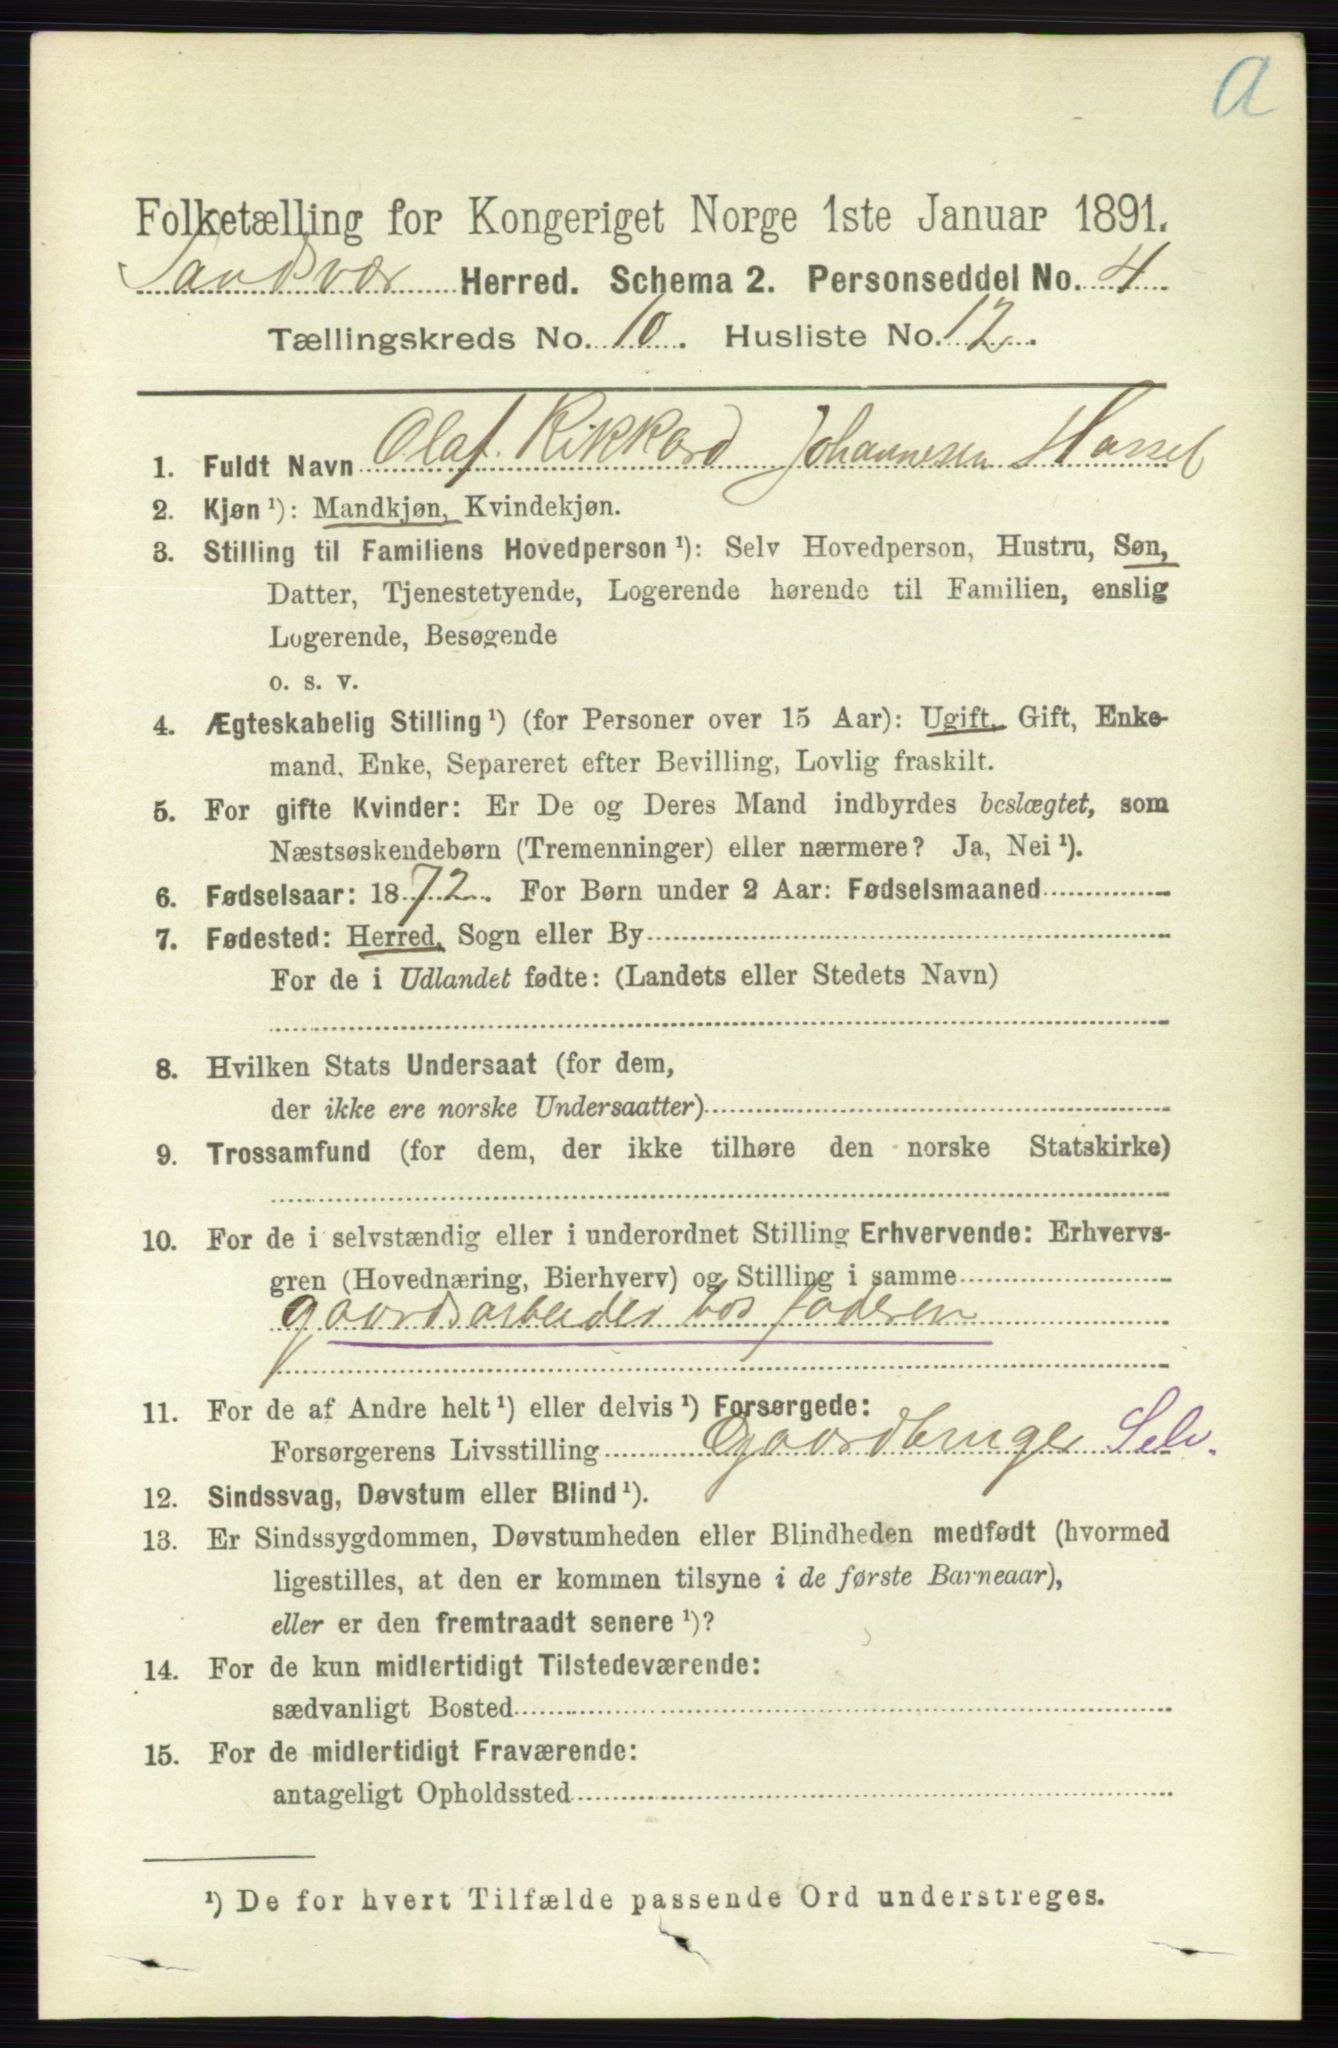 a
Folketælling for Kongeriget Norge 1ste Januar 1891.
Sandsvær Herred. Schema 2. Personseddel No. 4
Tællingskreds No. 10. Husliste No. 12.
1. Fuldt Navn Olaf Rikkard Johannesen Hassel
2. Kjøn ¹): Mandkjøn, Kvindekjøn.
3. Stilling til Familiens Hovedperson ¹): Selv Hovedperson, Hustru, Søn,
Datter, Tjenestetyende, Logerende hørende til Familien, enslig
Logerende, Besøgende
o. s. v.
4. Ægteskabelig Stilling ¹) (for Personer over 15 Aar): Ugift, Gift, Enke-
mand, Enke, Separeret efter Bevilling, Lovlig fraskilt.
5. For gifte Kvinder: Er De og Deres Mand indbyrdes beslægtet, som
Næstsøskendebørn (Tremenninger) eller nærmere? Ja, Nei ¹).
6. Fødselsaar: 1872. For Børn under 2 Aar: Fødselsmaaned
7. Fødested: Herred, Sogn eller By
For de i Udlandet fødte: (Landets eller Stedets Navn)
8. Hvilken Stats Undersaat (for dem,
der ikke ere norske Undersaatter)
9. Trossamfund (for dem, der ikke tilhøre den norske Statskirke)
10. For de i selvstændig eller i underordnet Stilling Erhvervende: Erhvervs-
gren (Hovednæring, Bierhverv) og Stilling i samme
gaardsarbeider hos faderen
11. For de af Andre helt ¹) eller delvis ¹) Forsørgede:
Forsørgerens Livsstilling Gaardbruger Selv.
12. Sindssvag, Døvstum eller Blind ¹).
13. Er Sindssygdommen, Døvstumheden eller Blindheden medfødt (hvormed
ligestilles, at den er kommen tilsyne i de første Barneaar),
eller er den fremtraadt senere ¹)?
14. For de kun midlertidigt Tilstedeværende:
sædvanligt Bosted
15. For de midlertidigt Fraværende:
antageligt Opholdssted
¹) De for hvert Tilfælde passende Ord understreges.